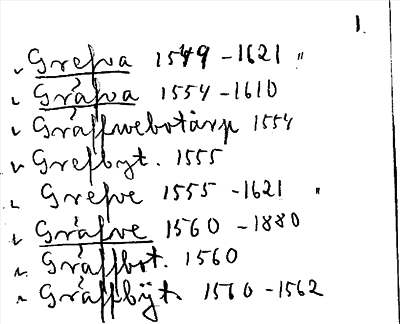 1.
Grefva 1549 - 1621 "
Gräfva 1554 - 1610
Gräffwebotarp 1554
Grefbyt. 1555
Grefve 1555 - 1621 "
Gräfve 1560 - 1880
Gräffbot. 1560
Gräffbÿt. 1560 - 1562